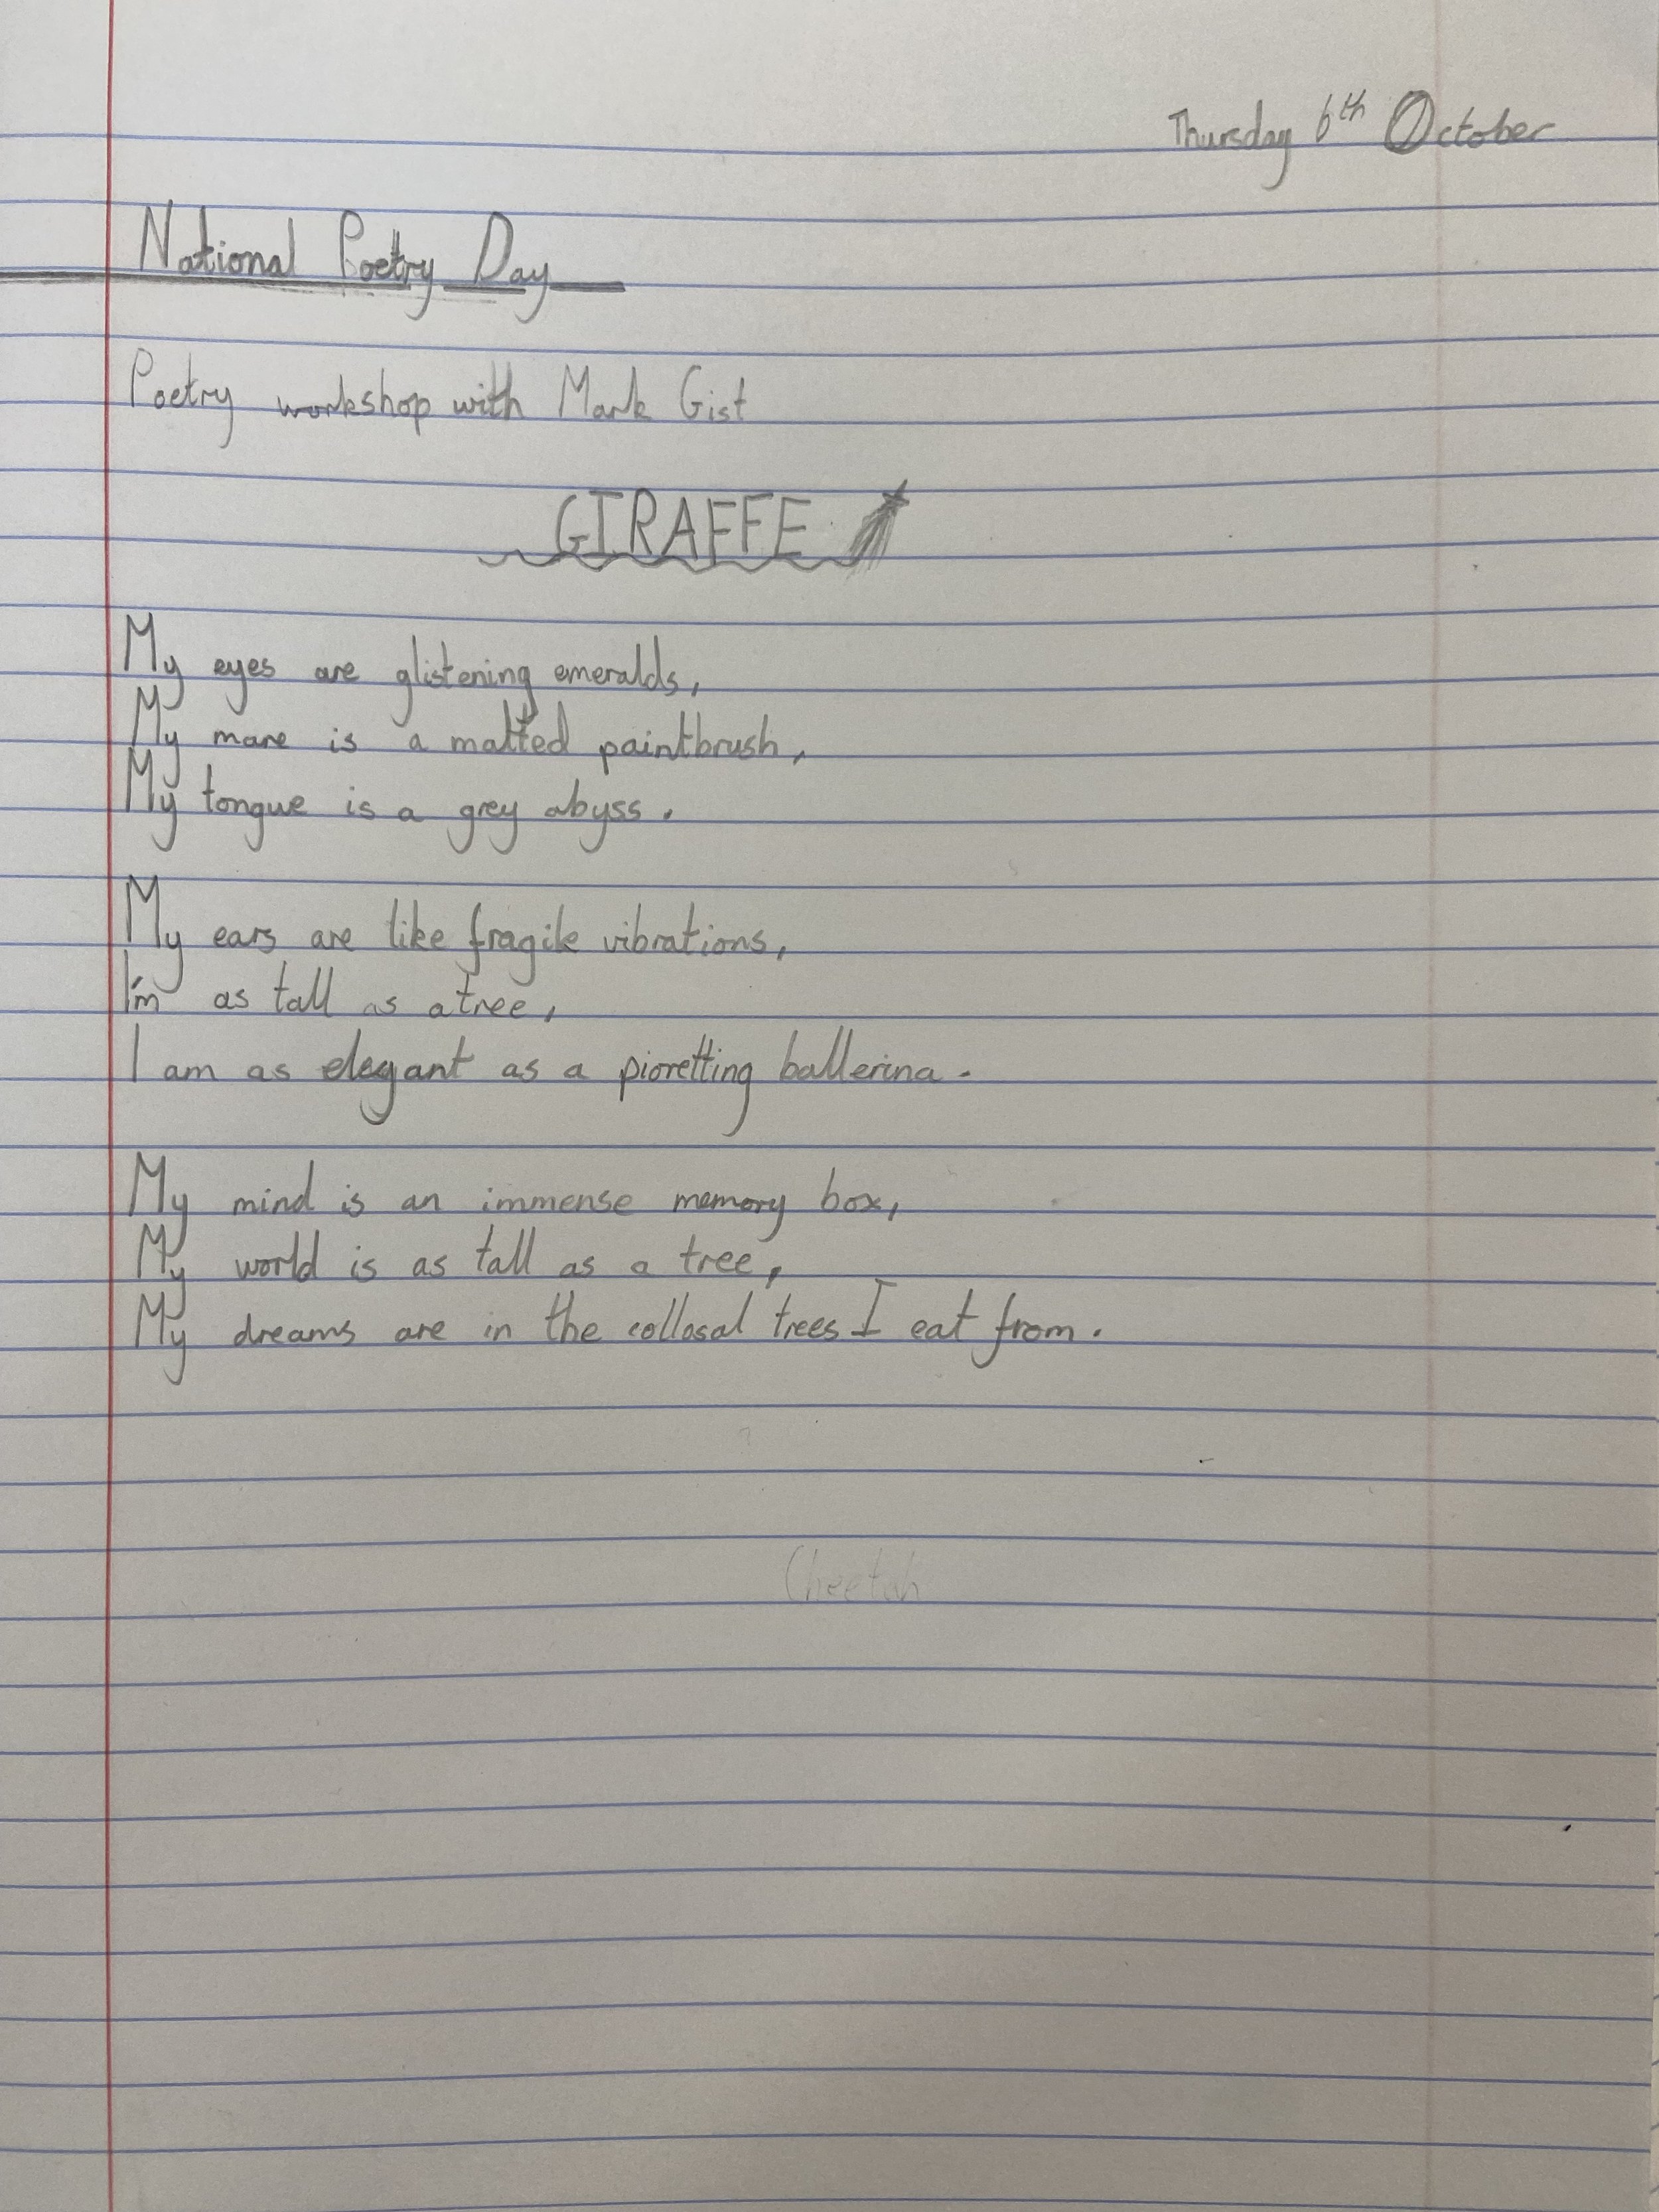 Thursday 6th October
National Poetry Day
Poetry workshop with Mark Gist
GIRAFFE
My eyes are glistening emeralds,
My mane is a matted paintbrush,
My tongue is a grey abyss.
My ears are like fragile vibrations,
I'm as tall as a tree,
I am as elegant as a pioretting ballerina.
My mind is an immense memory box,
My world is as tall as a tree,
My dreams are in the collosal trees I eat from.
Cheetah